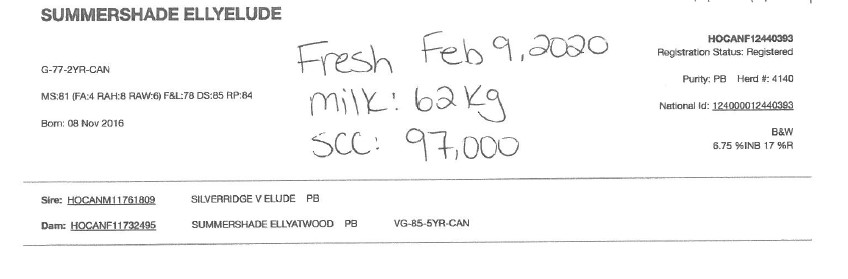 SUMMERSHADE ELLYELUDE
HOCANF12440393
Registration Status: Registered
G-77-2YR-CAN
Purity: PB Herd #: 4140
MS:81 (FA:4 RAH:8 RAW:6) F&L:78 DS:85 RP:84
National Id: 124000012440393
Born: 08 Nov 2016
B&W
6.75 %INB 17 %R
Fresh Feb 9, 2020
milk: 62 kg
SCC: 97,000
Sire: HOCANM11761809 SILVERRIDGE V ELUDE PB
Dam: HOCANF11732495 SUMMERSHADE ELLYATWOOD PB VG-85-5YR-CAN